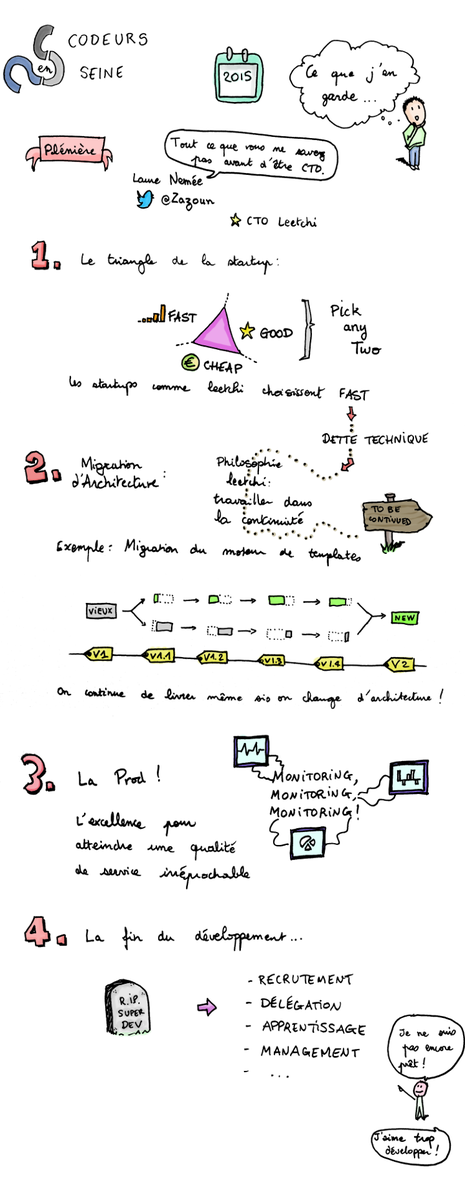 CODEURS
en SEINE
2015
Ce que j'en
garde...
Plénière
Tout ce que vous ne savez
pas avant d'être CTO.
Laure Nemée
@Zazoun
CTO Leetchi
1. Le triangle de la startup:
FAST
GOOD
€ CHEAP
Pick
any
Two
Les startups comme leetchi choisissent FAST
DETTE TECHNIQUE
2. Migration
d'Architecture:
Philosophie
leetchi:
travailler dans
la continuité
TO BE
CONTINUED
Exemple: Migration du moteur de templates
VIEUX
NEW
V1 V1.1 V1.2 V1.3 V1.4 V2
On continue de livrer même sis on change d'architecture!
3. La Prod!
MONITORING,
MONITORING,
MONITORING!
L'excellence pour
atteindre une qualité
de service irréprochable
4. La fin du développement...
R.I.P.
SUPER
DEV
- RECRUTEMENT
- DÉLÉGATION
- APPRENTISSAGE
- MANAGEMENT
- ...
Je ne suis
pas encore
prêt!
J'aime trop
développer!